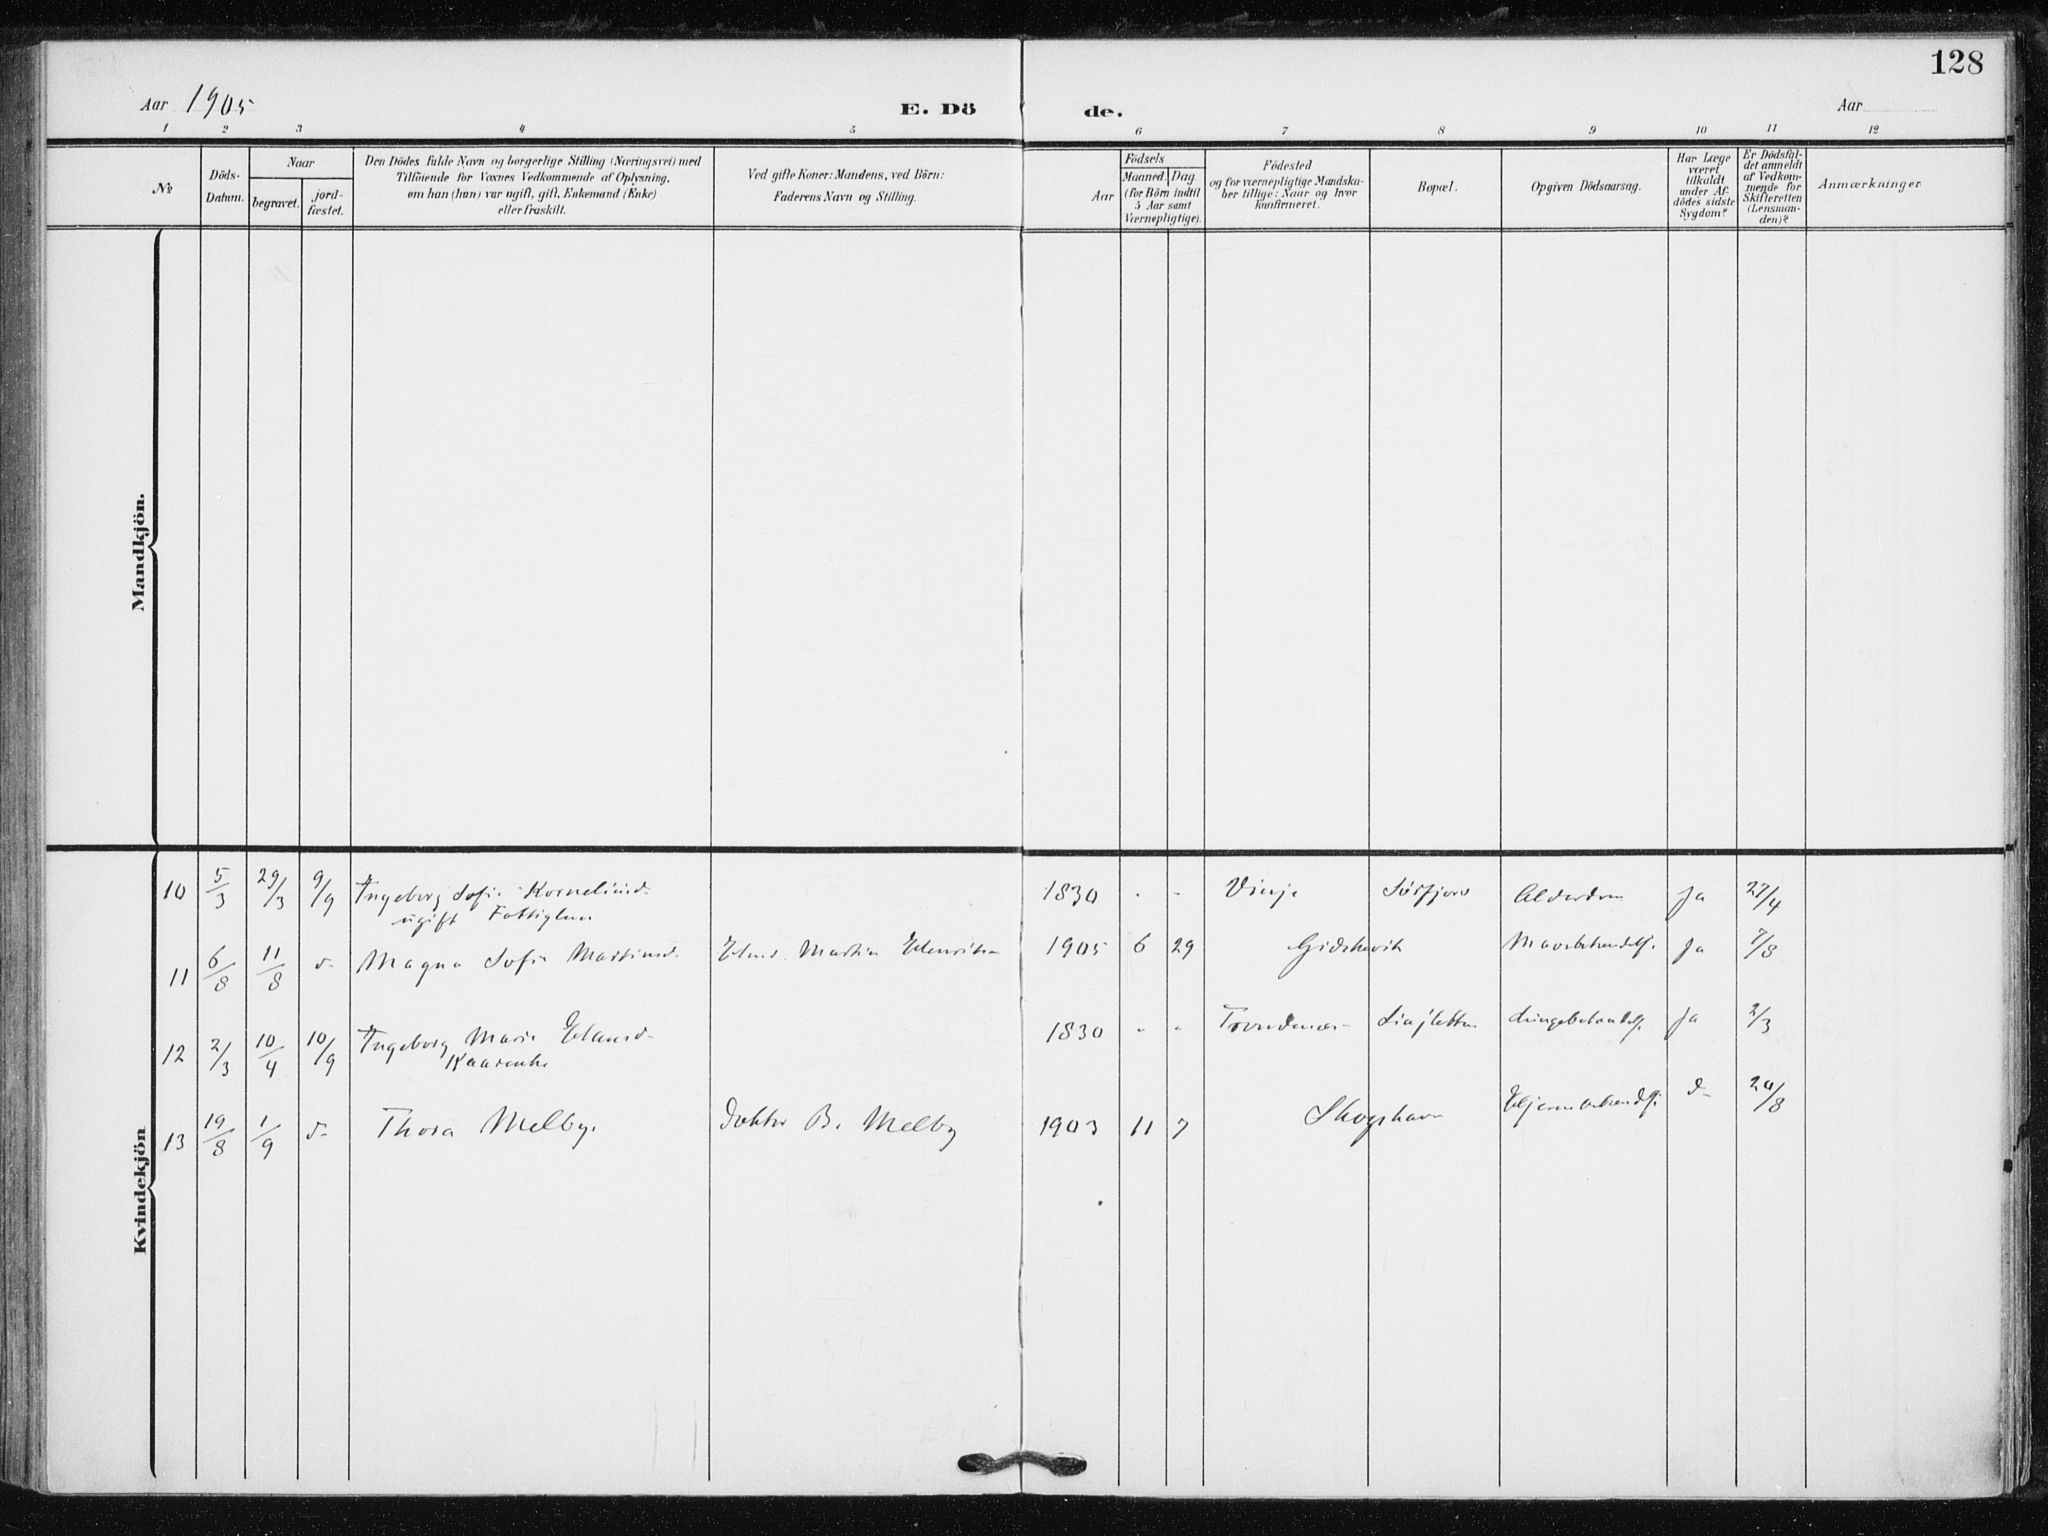 128
Aar 1905
E. Dö de.
Aar
1 2 3 4 5 6 7 8 9 10 11 12
№
Döds-
Datum.
Naar
begravet.
jord-
fæstet.
Den Dödes fulde Navn og borgerlige Stilling (Næringsvei) med
Tilföiende for Voxnes Vedkommende af Oplysning,
om han (hun) var ugift, gift, Enkemand (Enke)
eller fraskilt.
Ved gifte Koner: Mandens, ved Börn:
Faderens Navn og Stilling.
Aar
Födsels
Maaned. Dag
(for Börn indtil
5 Aar samt
Værnepligtige).
Födested
og for værnepligtige Mandska-
ber tillige: Naar og hvor
konfirmeret.
Bopæl.
Opgiven Dödsaarsag.
Har Læge
været
tilkaldt
under Af-
dödes sidste
Sygdom?
Er Dödsfal-
det anmeldt
af Vedkom-
mende for
Skifteretten
(Lensman-
den)?
Anmærkninger
Mandkjön.
Kvindekjön
10 5/3 29/3 9/9 Ingeborg Sofie Korneliusd. 1830 - - Vinje Sörfjord Alderdom Ja 27/4
ugift
11 6/8 11/8 d- Magna Sofie Martinsd. Martin 1905 6 29 Gidskevik Ja 7/8
12 2/3 10/4 10/9 Ingeborg Marie 1830 - - Trondenæs Lungebetændelse Ja 2/3
Kaarenke
13 19/8 1/9 d- Thora Melby. Doktor B. Melby 1903 11 7 Skogshavn d- 20/8